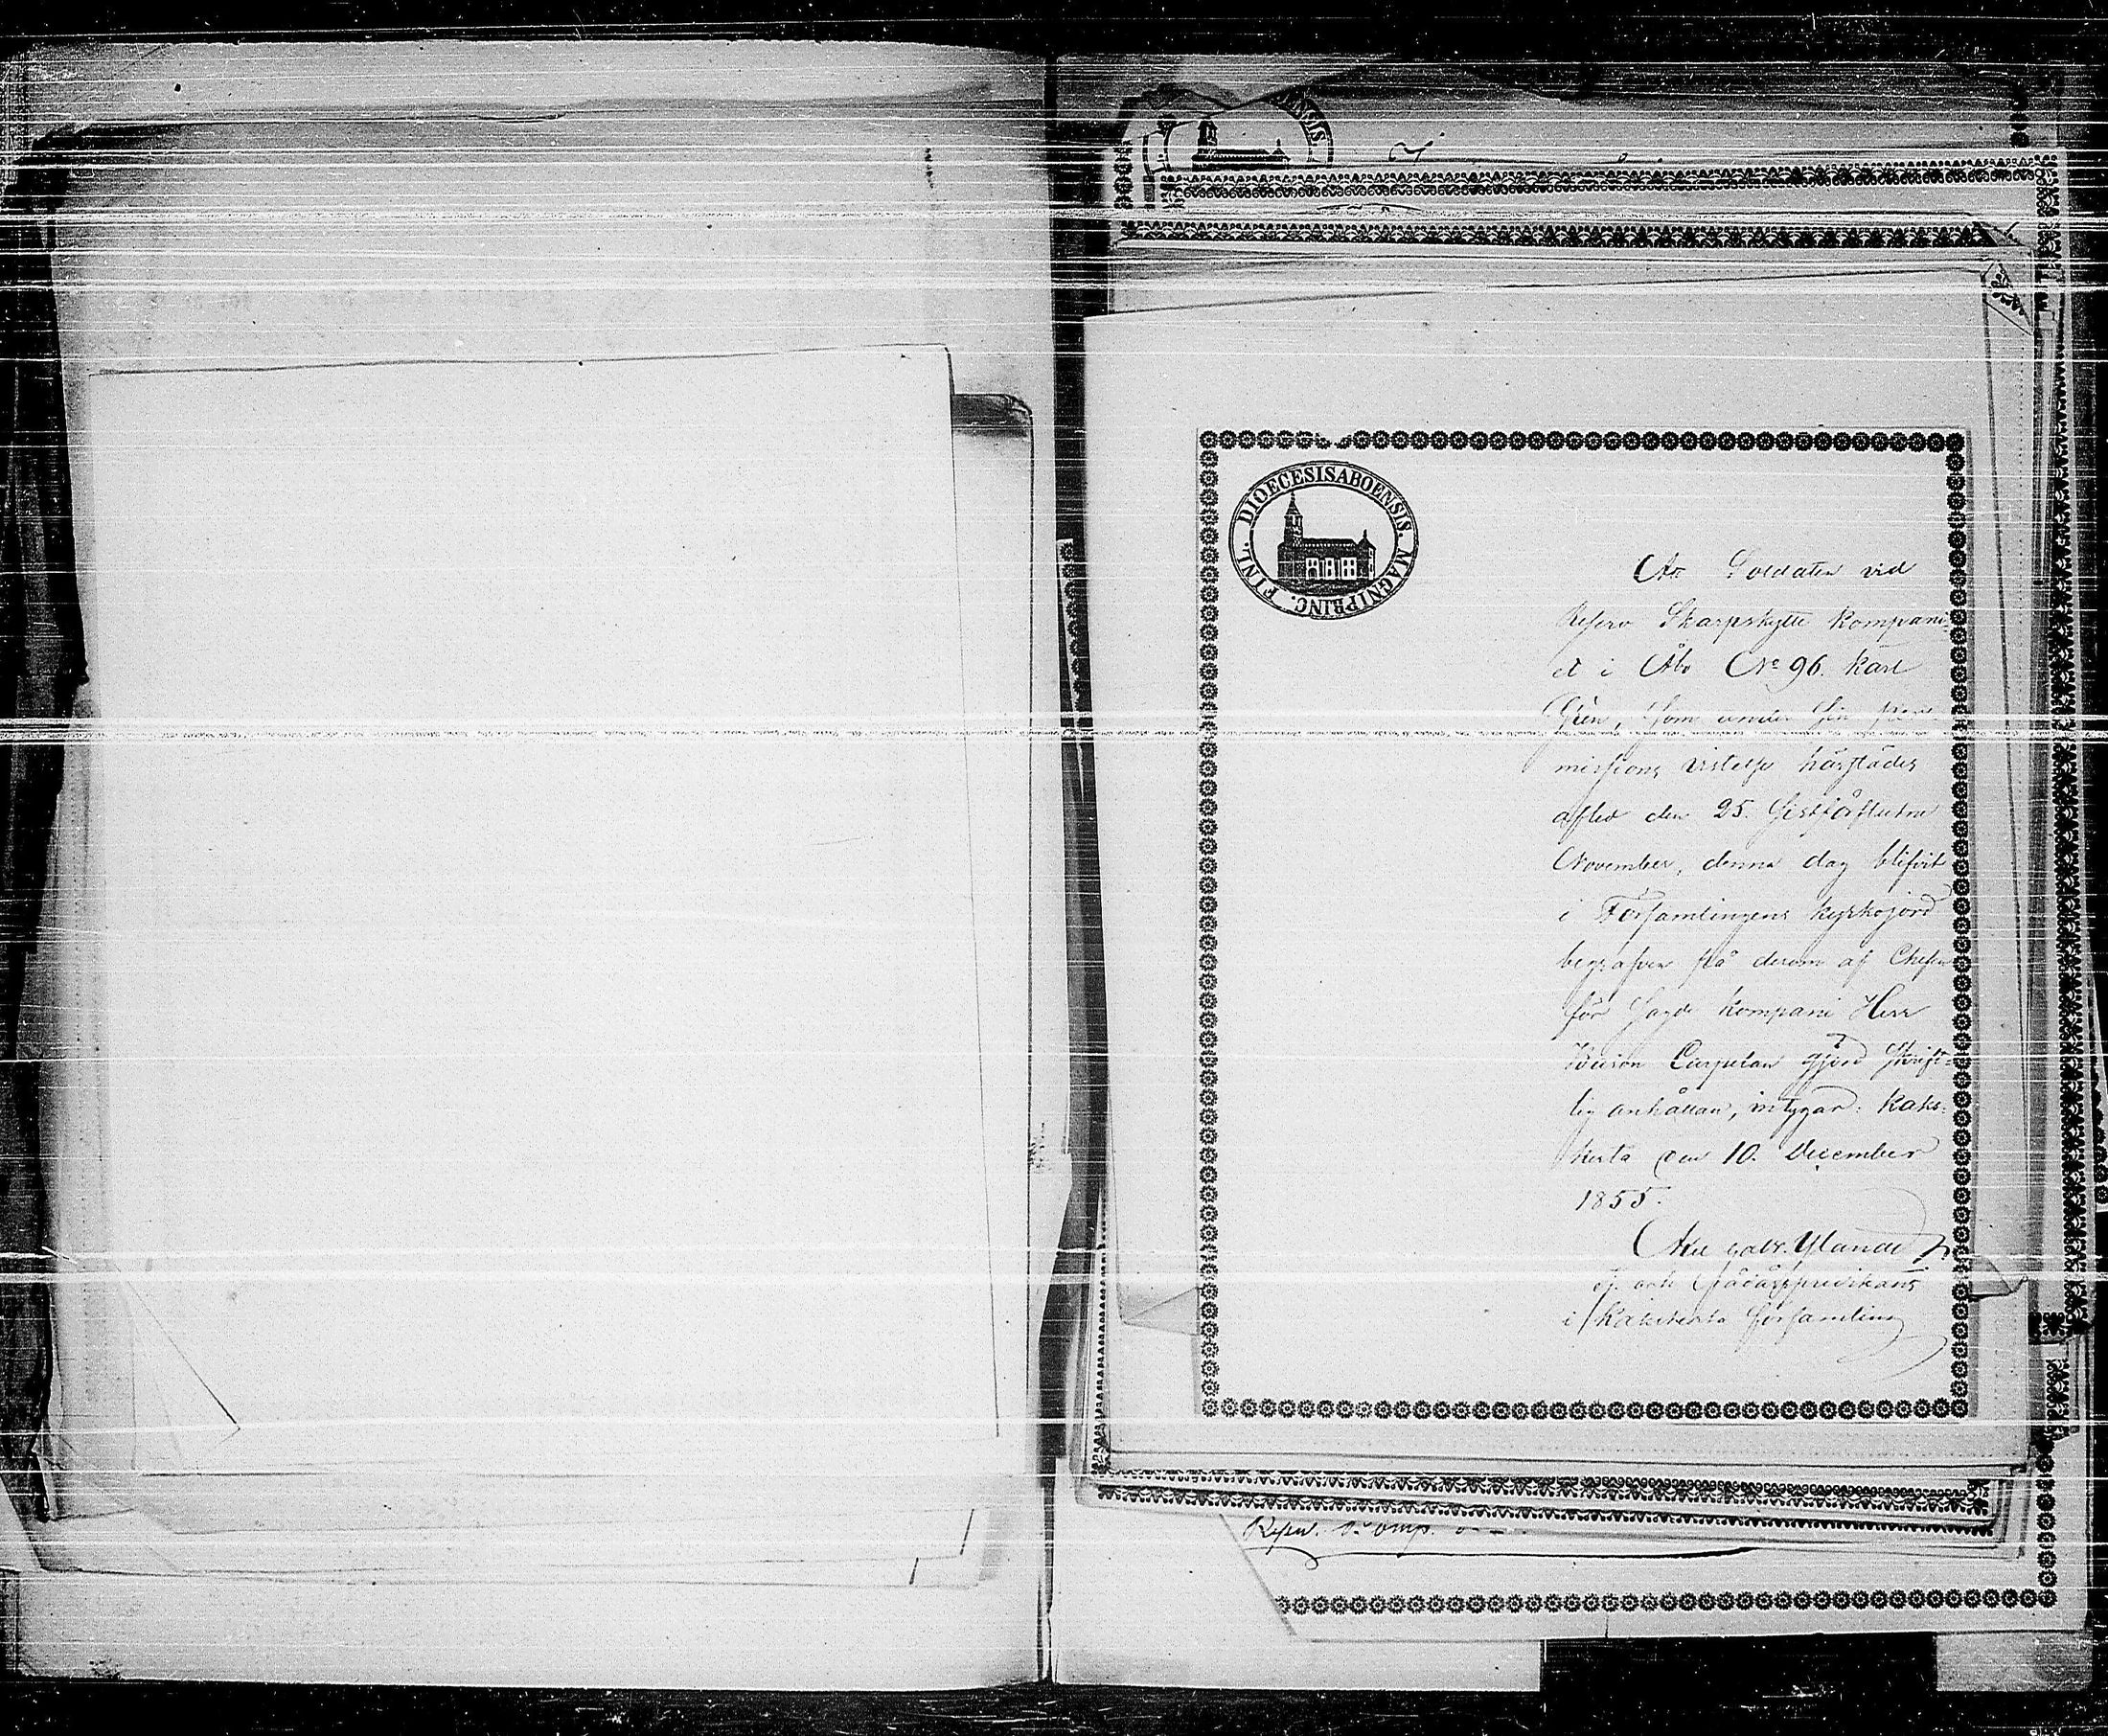 DIOECESIS ABOENSIS. MAGNI PRINC. FINL.
Att Soldaten vid
Reserv Skarpskytte Kompani-
et i Åbo No 96. Karl
Grén, som under sin per-
missions vistelse härstädes
afled den 25. sistförflutne
November, denna dag blifvit
i Församlingens kyrkojord
begrafven på derom af Chefen
för sagde Kompani Herr
Baron Carpelan gjord skrift-
lig anhållan, intygar: Kaks-
kerta den 10. December
1855.
Axel Gabr. Ylander
v. och Sådärspredikant
i Kakskerta församling
Reserv. Komp.